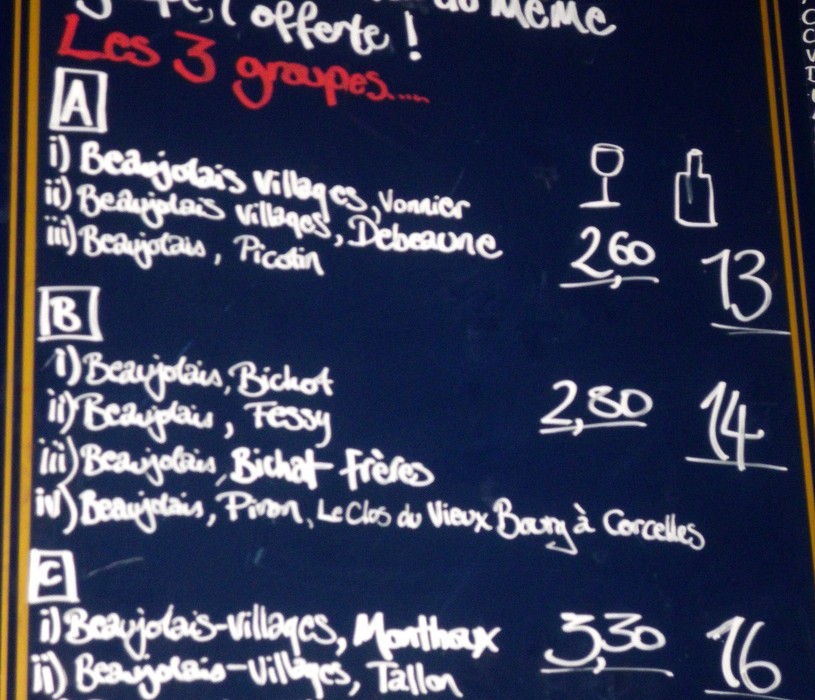 l'offerte ! du MêMe
Les 3 groupes....
A
i) Beaujolais Villages, Vonnier
ii) Beaujolais Villages, Debeaune
iii) Beaujolais, Picotin
2,60 13
B
i) Beaujolais, Bichot
ii) Beaujolais, Fessy
2,80 14
iii) Beaujolais, Bichot Frères
iv) Beaujolais, Piron, Le Clos du Vieux Bourg à Corcelles
C
i) Beaujolais-Villages, Monthoux
3,30 16
ii) Beaujolais-Villages, Tallon